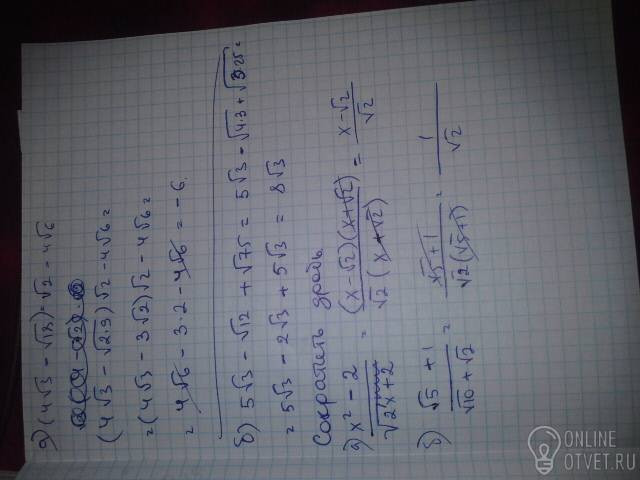 а) (4√3 - √18)·√2 - 4√6
(4√3 - √2·9)√2 - 4√6 =
= (4√3 - 3√2)√2 - 4√6 =
= 4√6 - 3·2 - 4√6 = -6.
б) 5√3 - √12 + √75 = 5√3 - √4·3 + √3·25 =
= 5√3 - 2√3 + 5√3 = 8√3
Сократить дробь
а) (x² - 2)/(√2x + 2) = ((x - √2)(x + √2))/(√2(x + √2)) = (x - √2)/√2
б) (√5 + 1)/(√10 + √2) = (√5 + 1)/(√2(√5 + 1)) = 1/√2
ONLINE
OTVET.RU